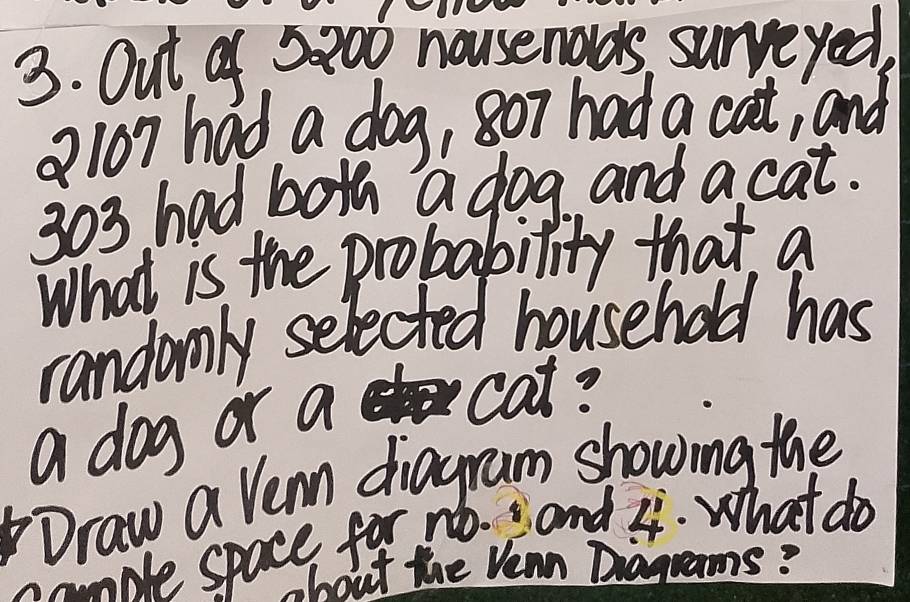 3. Out of 5200 households surveyed,
2107 had a dog, 807 had a cat, and
303 had both a dog and a cat.
What is the probability that a
randomly selected household has
a dog or a cat?
Draw a Venn diagram showing the
sample space for no. 3 and 4. What do
about the Venn Diagrams?